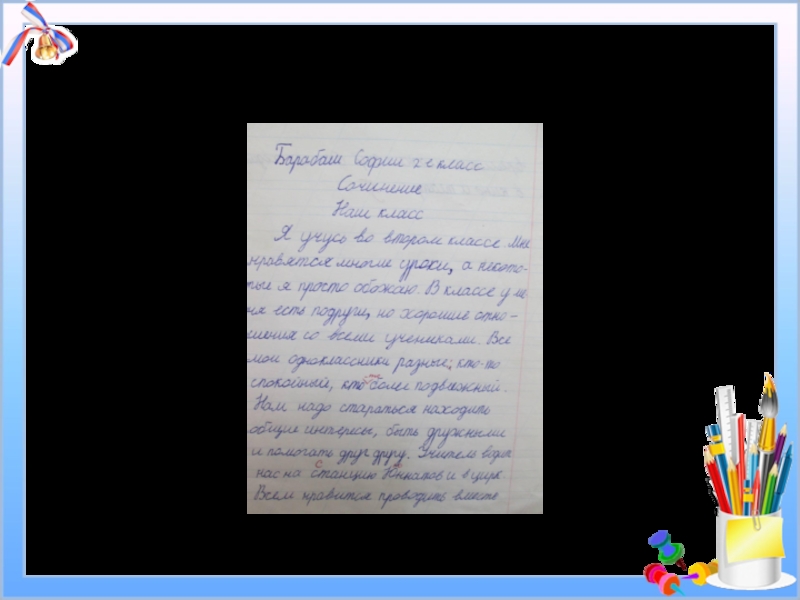 Барабаш Софии 2 е класс
Сочинение
Наш класс
Я учусь во втором классе. Мне
нравятся многие уроки, а некото-
рые я просто обожаю. В классе у ме-
ня есть подруги, но хорошие отно-
шения со всеми учениками. Все
мои одноклассники разные: кто-то
спокойный, кто более подвижный.
Нам надо стараться находить
общие интересы, быть дружными
и помогать друг другу. Учитель водит
нас на станцию Юннатов и в цирк
Всем нравится проводить вместе